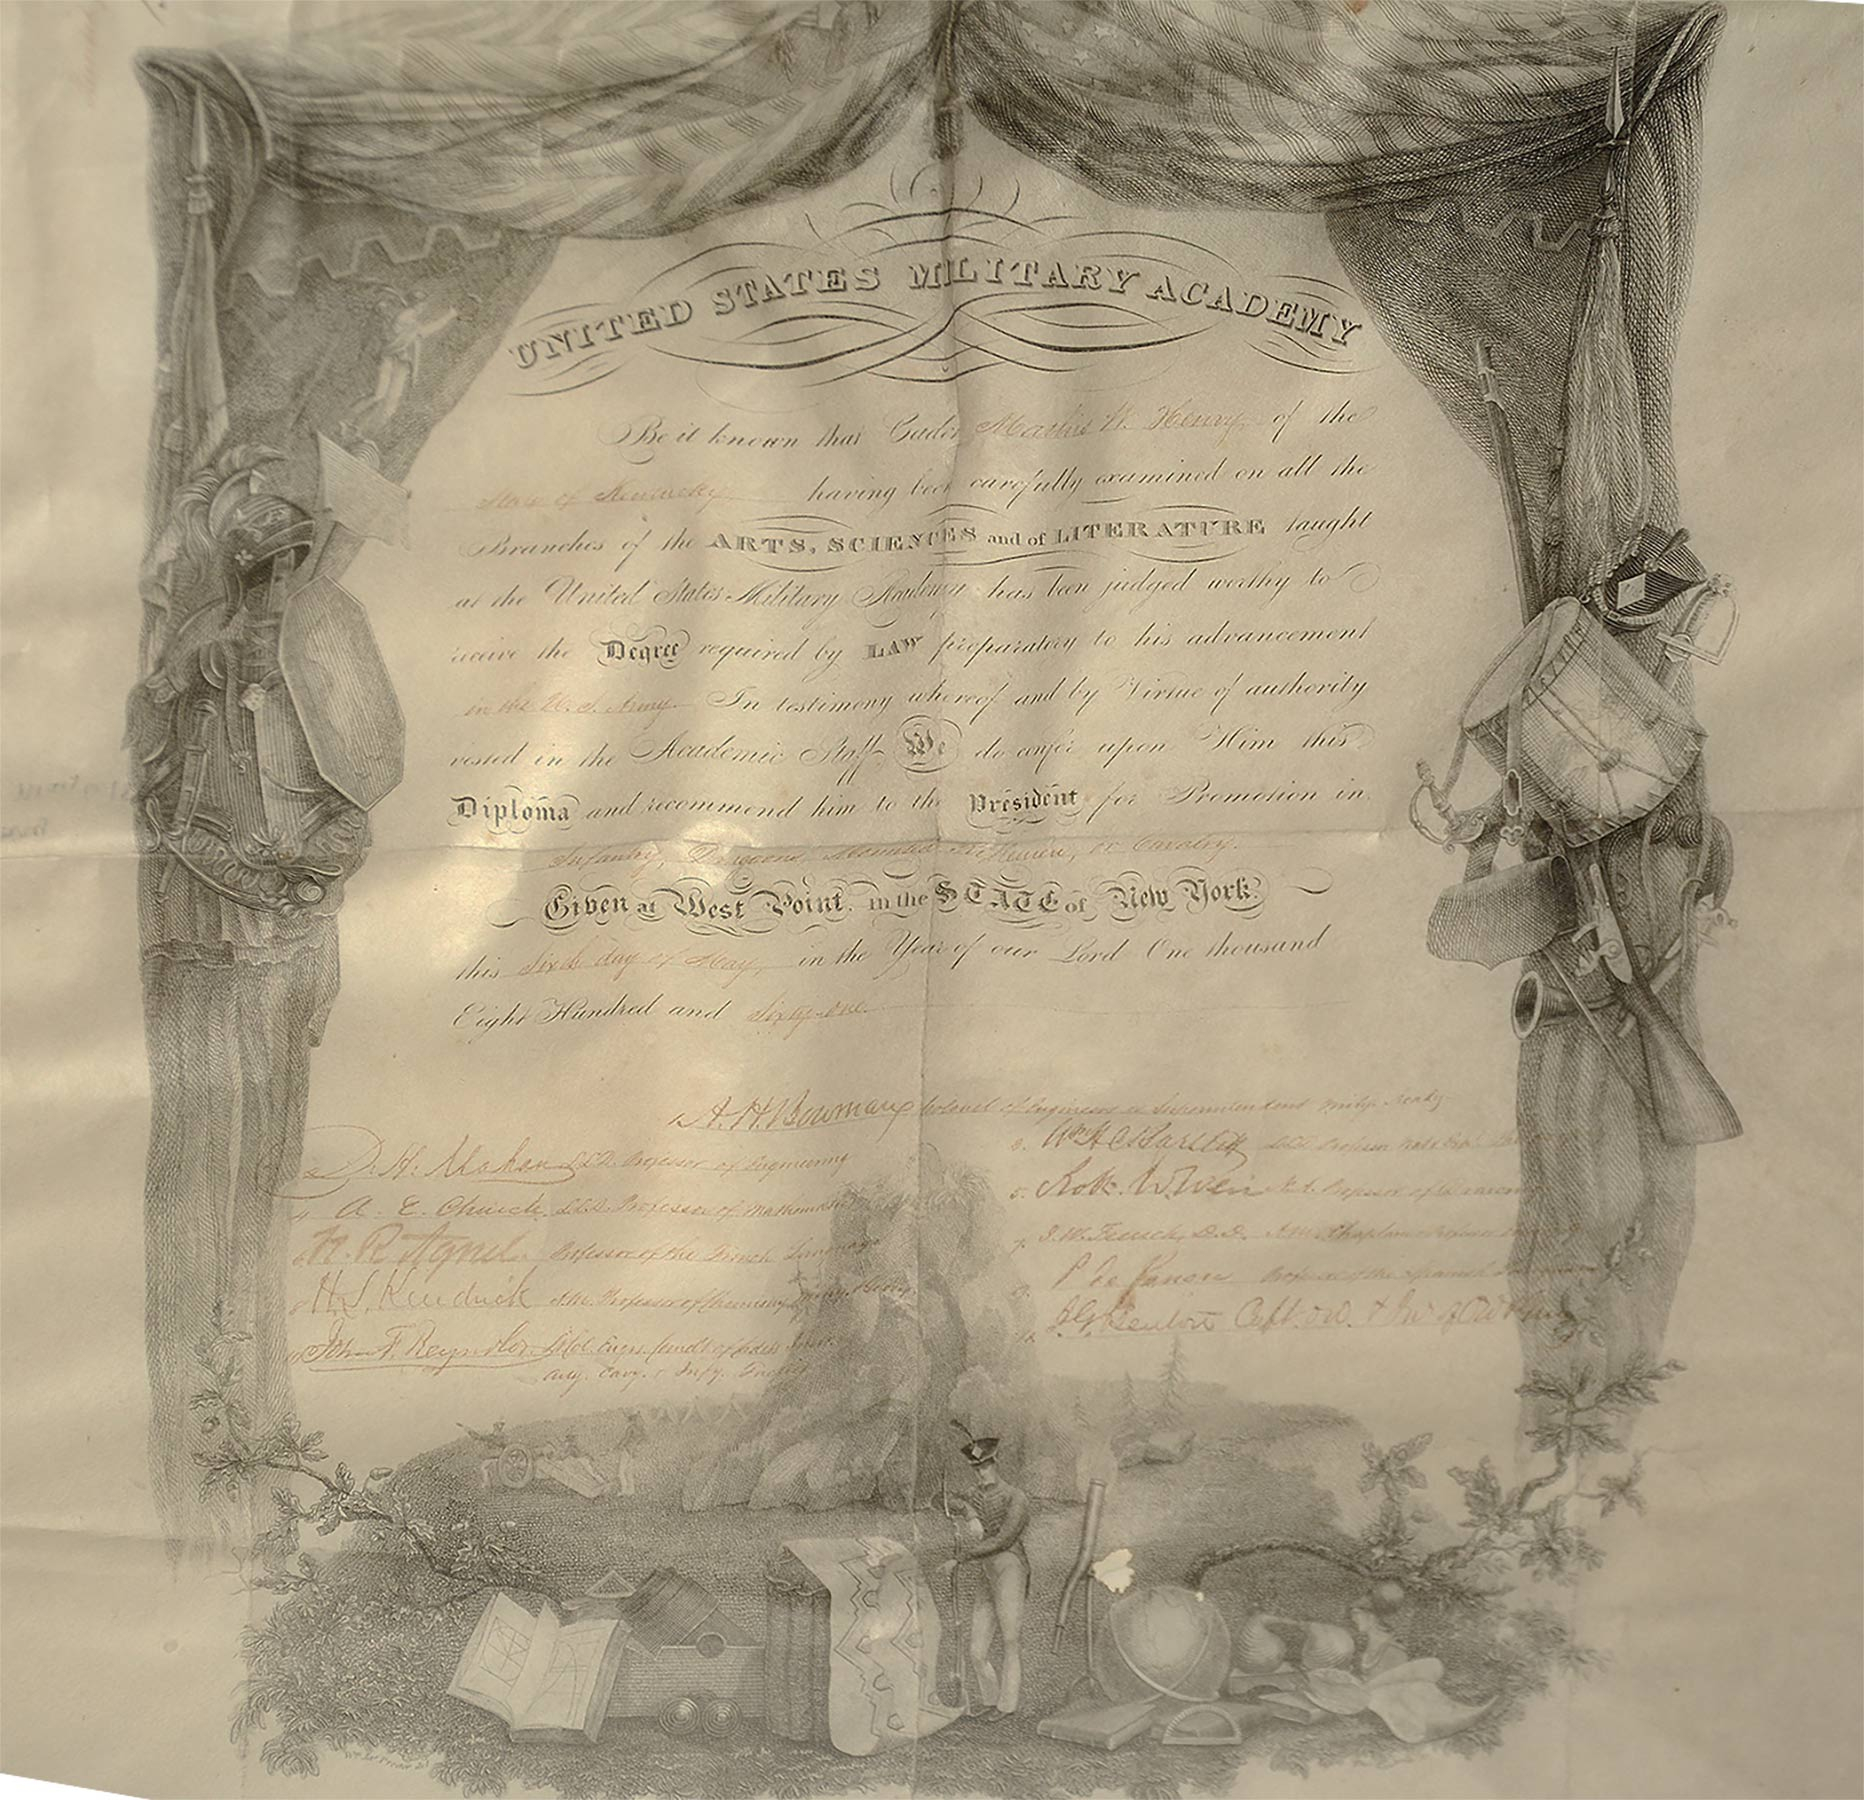 UNITED STATES MILITARY ACADEMY
Be it known that Cadet Mathis W. Henry, of the
State of Kentucky, having been carefully examined on all the
Branches of the ARTS, SCIENCES and of LITERATURE taught
at the United States Military Academy has been judged worthy to
receive the Degree required by LAW preparatory to his advancement
in the U.S. Army. In testimony whereof and by Virtue of authority
vested in the Academic Staff We do confer upon Him this
Diploma and recommend him to the President for Promotion in
Infantry, Dragoons, Mounted Riflemen, or Cavalry.
Given at West Point, in the STATE of New York.
this Sixth day of May, in the Year of our Lord One thousand
Eight Hundred and Sixty-one.
1. A. H. Bowman, Colonel of Engineers & Superintendent Mily. Acady.
D. H. Mahan LL.D. Professor of Engineering
3. Wm H C Bartlett LLD Professor Nat & Exp.
4 A. E. Church. LL.D. Professor of Mathematics
5. Robt. W. Weir N.A. Professor of Drawing
6 H. R. Agnel. Professor of the French Language
7. J. W. French, D.D. Chaplain & Professor
8 H. L. Kendrick A.M. Professor of Chemistry, Miny. & Geology,
9. P de Janon Professor of the Spanish Language
10 John F. Reynolds, Lt Col. Comdt of Cadets Instr.
Arty. Cavy. & Infy. Tactics
J. G. Benton Capt. Ord. & Ins of Ord & Guny